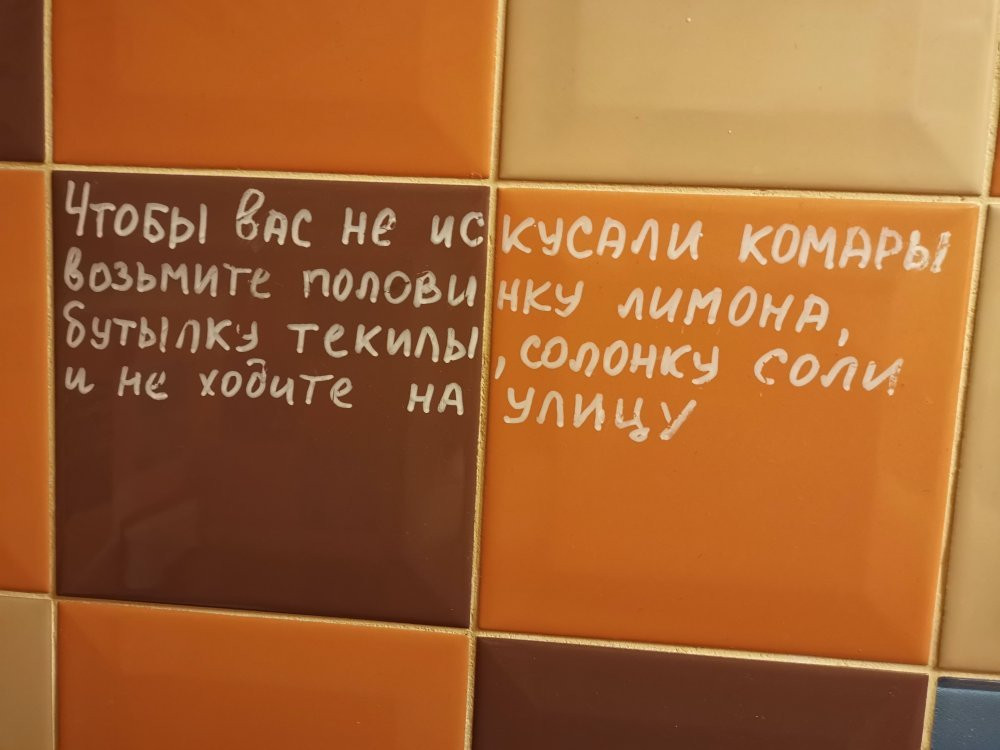 Чтобы вас не искусали комары
возьмите половинку лимона,
бутылку текилы, солонку соли
и не ходите на улицу